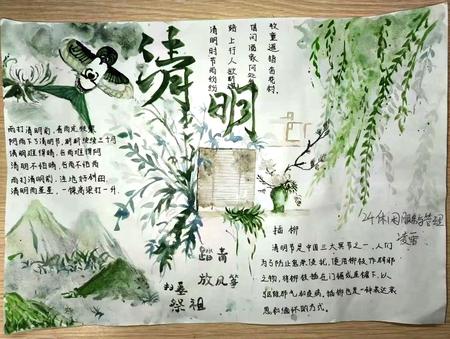 清明
清明时节雨纷纷
路上行人欲断魂
借问酒家何处有
牧童遥指杏花村。
雨打清明前，春雨定频繁
阴雨下了清明节，断断续续三个月
清明难得晴，谷雨难得阴
清明不怕晴，谷雨不怕雨
雨打清明前，洼地好种田
清明雨星星，一棵高粱打一升。
踏青
放风筝
扫墓
祭祖
插柳
清明节是中国三大冥节之一，人们
为了防止鬼来侵扰，运用柳枝作辟邪
之物，将柳枝插在门楣或屋檐下，以
驱避邪气和疫病。插柳也是一种表达哀
思和缅怀的方式。
24休闲服务与管理